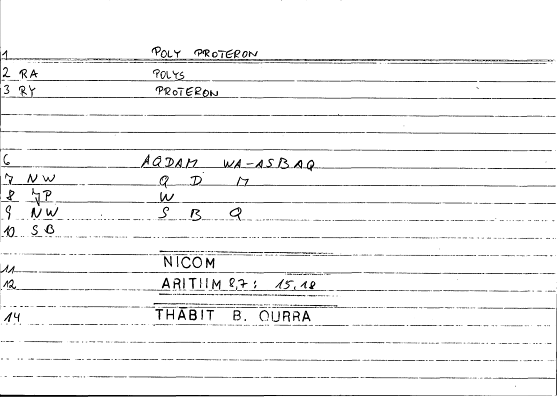 1 POLY PROTERON
2 RA POLYS
3 RY PROTERON
6 AQDAM WA-ASBAQ
7 NW Q D M
8 JP W
9 NW S B Q
10 SB
11 NICOM
12 ARITIIM 8,7: 15,18
14 THABIT B. QURRA